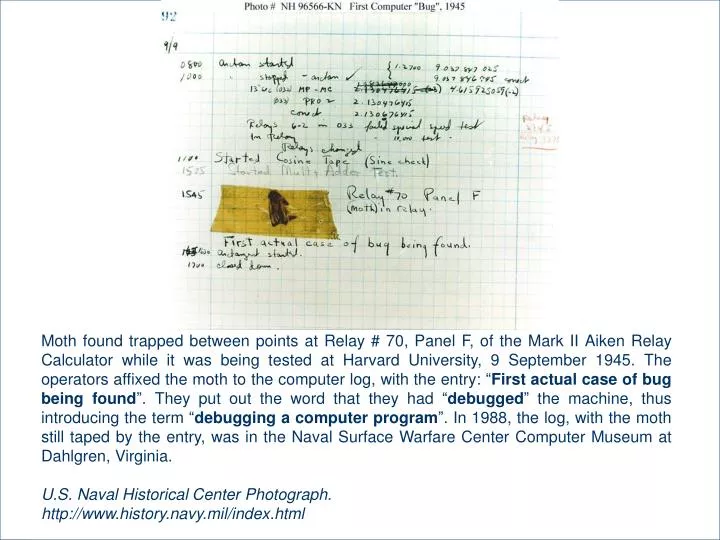 Photo # NH 96566-KN First Computer "Bug", 1945
92
9/9
0800 Antan started { 1.2700 9.037 847 025
1000 " stopped - antan ✓ 9.037 846 995 correct
13"uc (032) MP - MC 2.130476415 (-3) 4.615925059(-2)
(033) PRO 2 2.130476415
correct 2.130676415
Relays 6-2 in 033 failed special speed test
In Relay " 11,000 test.
Relay
Relays changed
1100 Started Cosine Tape (Sine check)
1525 Started Mult+Adder Test.
1545 Relay #70 Panel F
(Moth) in relay.
First actual case of bug being found.
1630 antangent started.
1700 closed down.
Moth found trapped between points at Relay # 70, Panel F, of the Mark II Aiken Relay
Calculator while it was being tested at Harvard University, 9 September 1945. The
operators affixed the moth to the computer log, with the entry: “First actual case of bug
being found”. They put out the word that they had “debugged” the machine, thus
introducing the term “debugging a computer program”. In 1988, the log, with the moth
still taped by the entry, was in the Naval Surface Warfare Center Computer Museum at
Dahlgren, Virginia.
U.S. Naval Historical Center Photograph.
http://www.history.navy.mil/index.html